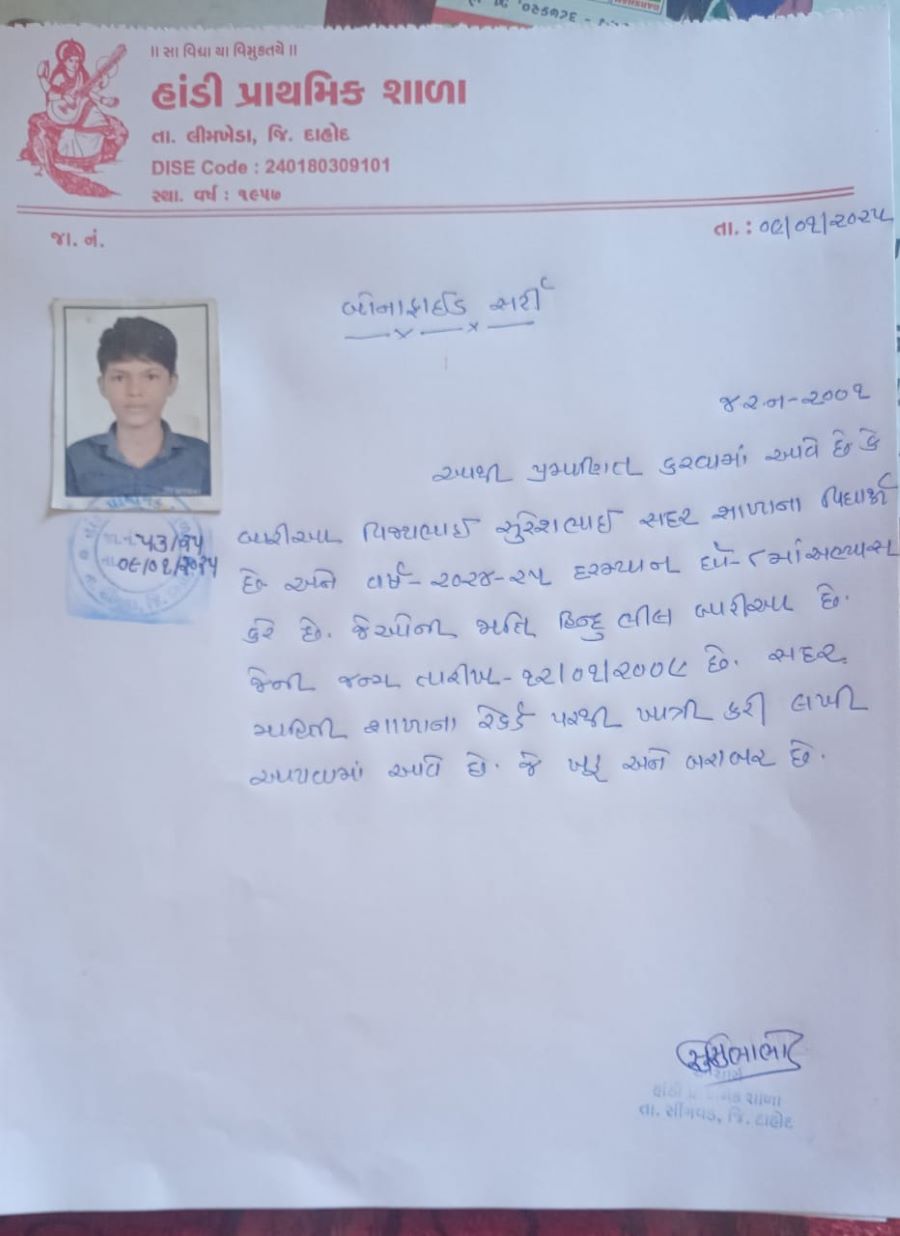 ॥ સા વિદ્યા યા વિમુક્તયે ॥
હાંડી પ્રાથમિક શાળા
તા. લીમખેડા, જિ. દાહોદ
DISE Code : 240180309101
સ્થા. વર્ષ : ૧૯૫૭
જા. નં.
તા. : ૦૯/૦૧/૨૦૨૫
બોનાફાઈડ સર્ટી
જ.ર.ન-૨૦૦૧
આથી પ્રમાણિત કરવામાં આવે છે કે
બારીઆ વિજયભાઈ સુરેશભાઈ સદર શાળાના વિદ્યાર્થી
છે. અને વર્ષ-૨૦૨૪-૨૫ દરમ્યાન ધો-૮માં અભ્યાસ
કરે છે. જેઓની જાતિ હિન્દુ ભીલ બારીઆ છે.
જેની જન્મ તારીખ-૧૨/૦૧/૨૦૦૯ છે. સદર
માહિતી શાળાના રેકર્ડ પરથી ખાત્રી કરી લખી
આપવામાં આવે છે. જે ખરૂ અને બરાબર છે.
જા.નં. ૫૩/૨૫
તા. ૦૯/૦૧/૨૦૨૫
હાંડી પ્રાથમિક શાળા
તા. સીંગવડ, જિ. દાહોદ